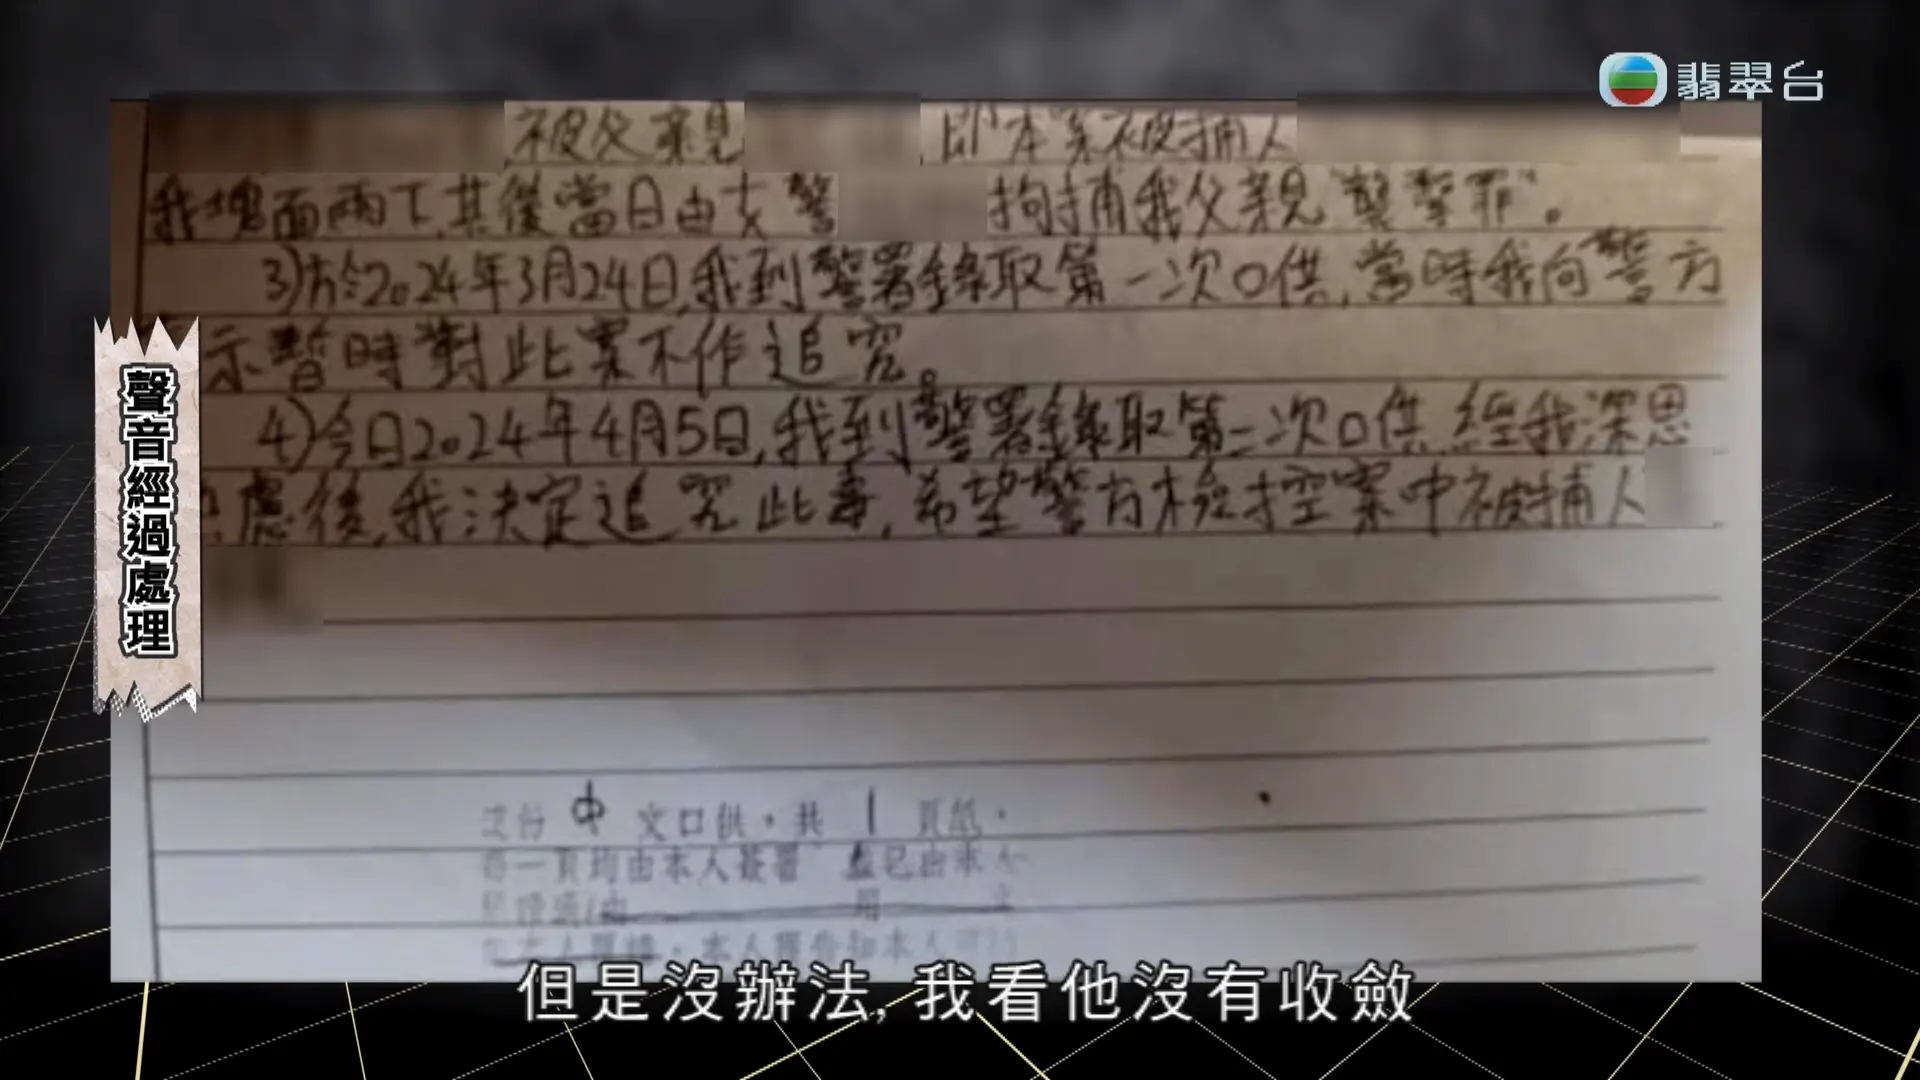 翡翠台
被父親 即本案被捕人
我塊面兩下,其後當日由女警 拘捕我父親"襲擊罪"。
3)於2024年3月24日,我到警署錄取第一次口供,當時我向警方
示暫時對此案不作追究。
4)今日2024年4月5日,我到警署錄取第二次口供,經我深思
慮後,我決定追究此事,希望警方檢控案中被捕人
聲音經過處理
這份 中 文口供,共 1 頁紙,
每一頁均由本人簽署 並已由本人
但是沒辦法,我看他沒有收斂